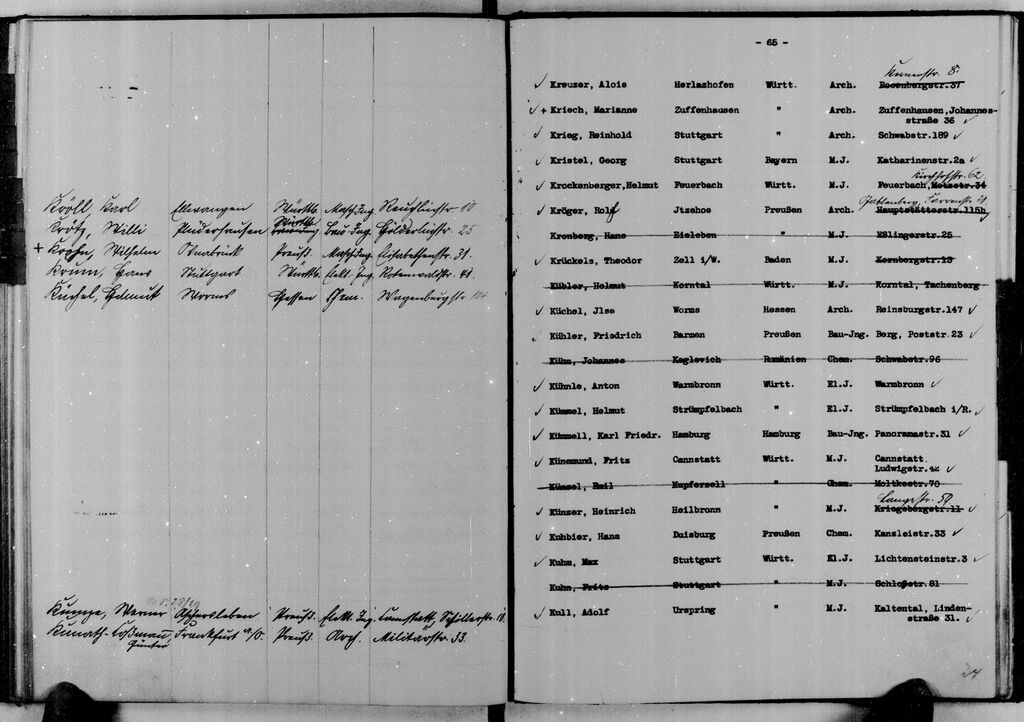 Kröll, Karl Ellwangen Württb. Masch.Ing. 10
Krotz, Willi Württb. Bau-Ing. 25
+ Wilhelm Osnabrück Preuß. Masch.Ing. Elisabethenstr. 31.
Krum, Hans Stuttgart Württb. Elekt. Ing. Rotenwaldstr. 41.
Küchel, Helmut Worms Hessen Chem. Wagenburgstr. 104
Kumpe, Werner Aschersleben Preuß. Elekt. Ing. Cannstatt, Schillerstr. 18.
Kunath-Coßmann, Frankfurt a/O. Preuß. Arch. Militärstr. 33.
Günter
- 65 -
Kernerstr. 8.
✓ Kreuzer, Alois Herlazhofen Württ. Arch. Rosenbergstr.37
✓ + Kriech, Marianne Zuffenhausen " Arch. Zuffenhausen,Johannes-
straße 36 ✓
✓ Krieg, Reinhold Stuttgart " Arch. Schwabstr.189 ✓
✓ Kristel, Georg Stuttgart Bayern M.J. Katharinenstr.2a ✓
Kirchhofstr. 62.
✓ Krockenberger,Helmut Feuerbach Württ. M.J. Feuerbach,Metzstr.34
Gablenberg, Farrenstr. 21
✓ Kröger, Rolf Jtzehoe Preußen Arch. Hauptstätterstr.115b
Kronberg, Hans Eisleben " M.J. Eßlingerstr.25
✓ Krückels, Theodor Zell i/W. Baden M.J. Kornbergstr.13
Kübler, Helmut Korntal Württ. M.J. Korntal, Tachenberg
✓ Küchel, Jlse Worms Hessen Arch. Reinsburgstr.147 ✓
✓ Kühler, Friedrich Barmen Preußen Bau-Jng. Berg, Poststr.23 ✓
Kühn, Johannes Keglevich Rumänien Chem. Schwabstr.96
✓ Kühnle, Anton Warmbronn Württ. El.J. Warmbronn ✓
✓ Kümmel, Helmut Strümpfelbach " El.J. Strümpfelbach i/R. ✓
✓ Kümmell, Karl Friedr. Hamburg Hamburg Bau-Jng. Panoramastr.31 ✓
✓ Künemund, Fritz Cannstatt Württ. M.J. Cannstatt
Ludwigstr.42 ✓
Künzel, Emil Kupferzell " Chem. Moltkestr.70
Langestr. 59
✓ Künzer, Heinrich Heilbronn " M.J. Kriegsbergstr.11 ✓
✓ Kuhbier, Hans Duisburg Preußen Chem. Kanzleistr.33 ✓
✓ Kuhm, Max Stuttgart Württ. El.J. Lichtensteinstr.3 ✓
Kuhn, Fritz Stuttgart " M.J. Schloßstr.81
✓ Kull, Adolf Urspring " M.J. Kaltental, Linden-
straße 31. ✓
24